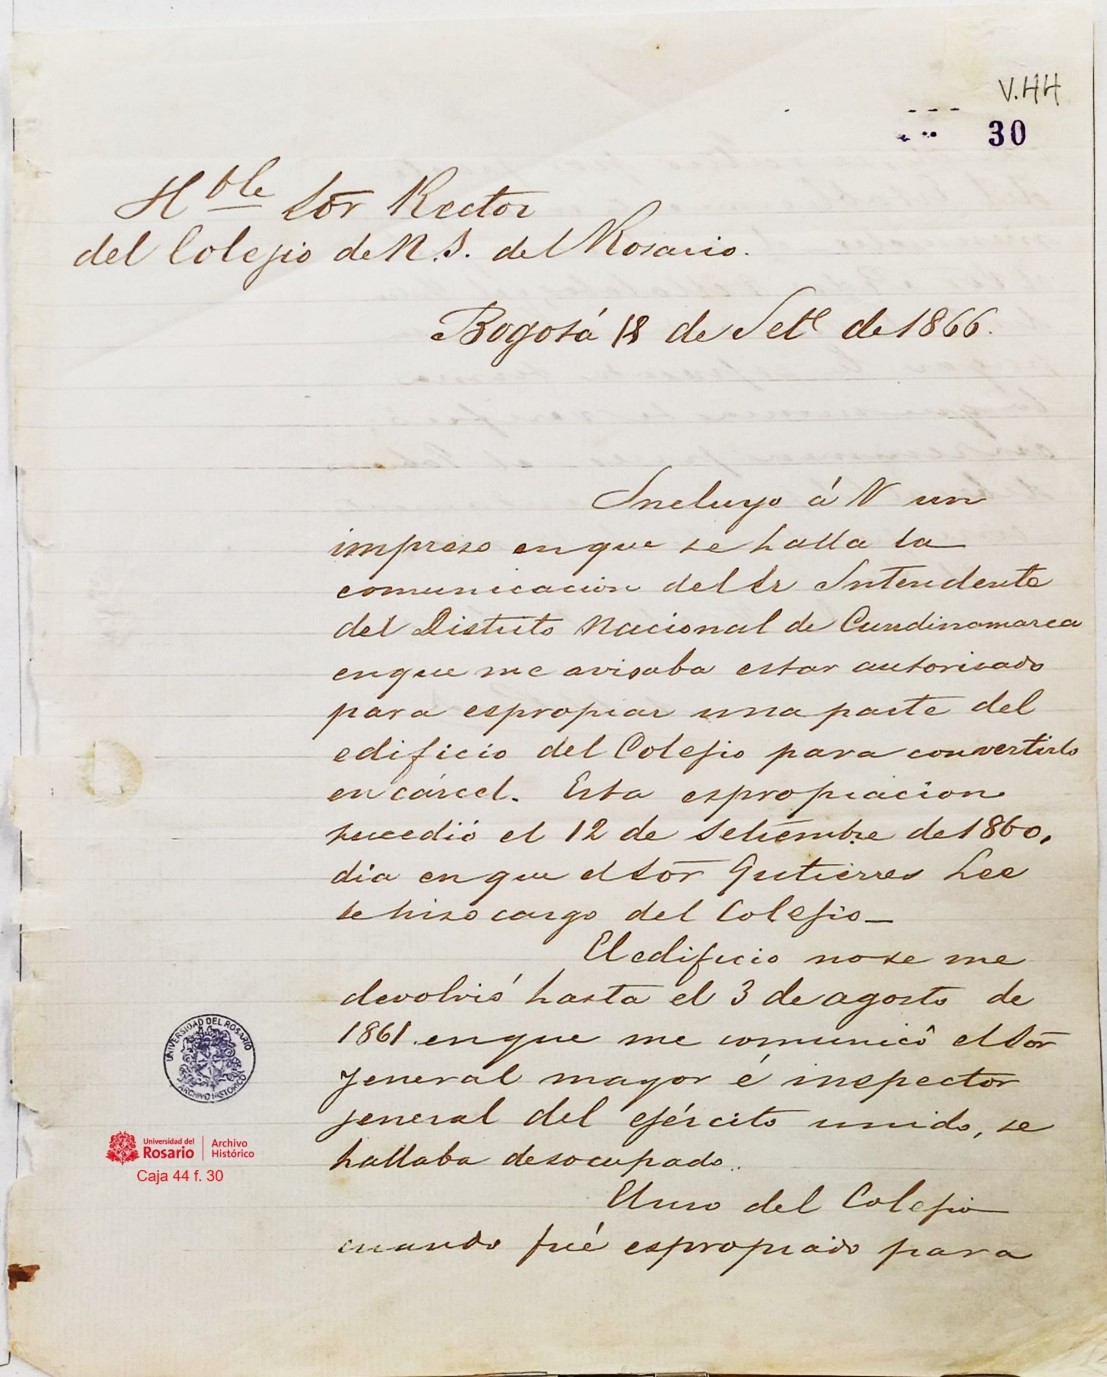 V.44
30
Hble Sōr Rector
del Colejio de N. S. del Rosario.
Bogotá 18 de Sete de 1866.
Incluyo á V un
impreso en que se halla la
comunicacion del Sr Intendente
del Distrito Nacional de Cundinamarca
en que me avisaba estar autorisado
para espropiar una parte del
edificio del Colejio para convertirlo
en cárcel. Esta espropiacion
sucedió el 12 de Setiembre de 1860,
dia en que el Sōr Gutierres Lee
se hiso cargo del Colejio_
El edificio no se me
devolvió hasta el 3 de agosto de
1861. en que me comunicó el Sōr
Jeneral mayor é inspector
jeneral del ejército unido, se
hallaba desocupado.
El uso del Colejio
cuando fué espropiado para
UNIVERSIDAD DEL ROSARIO
ARCHIVO HISTÓRICO
Universidad del Rosario | Archivo Histórico
Caja 44 f. 30